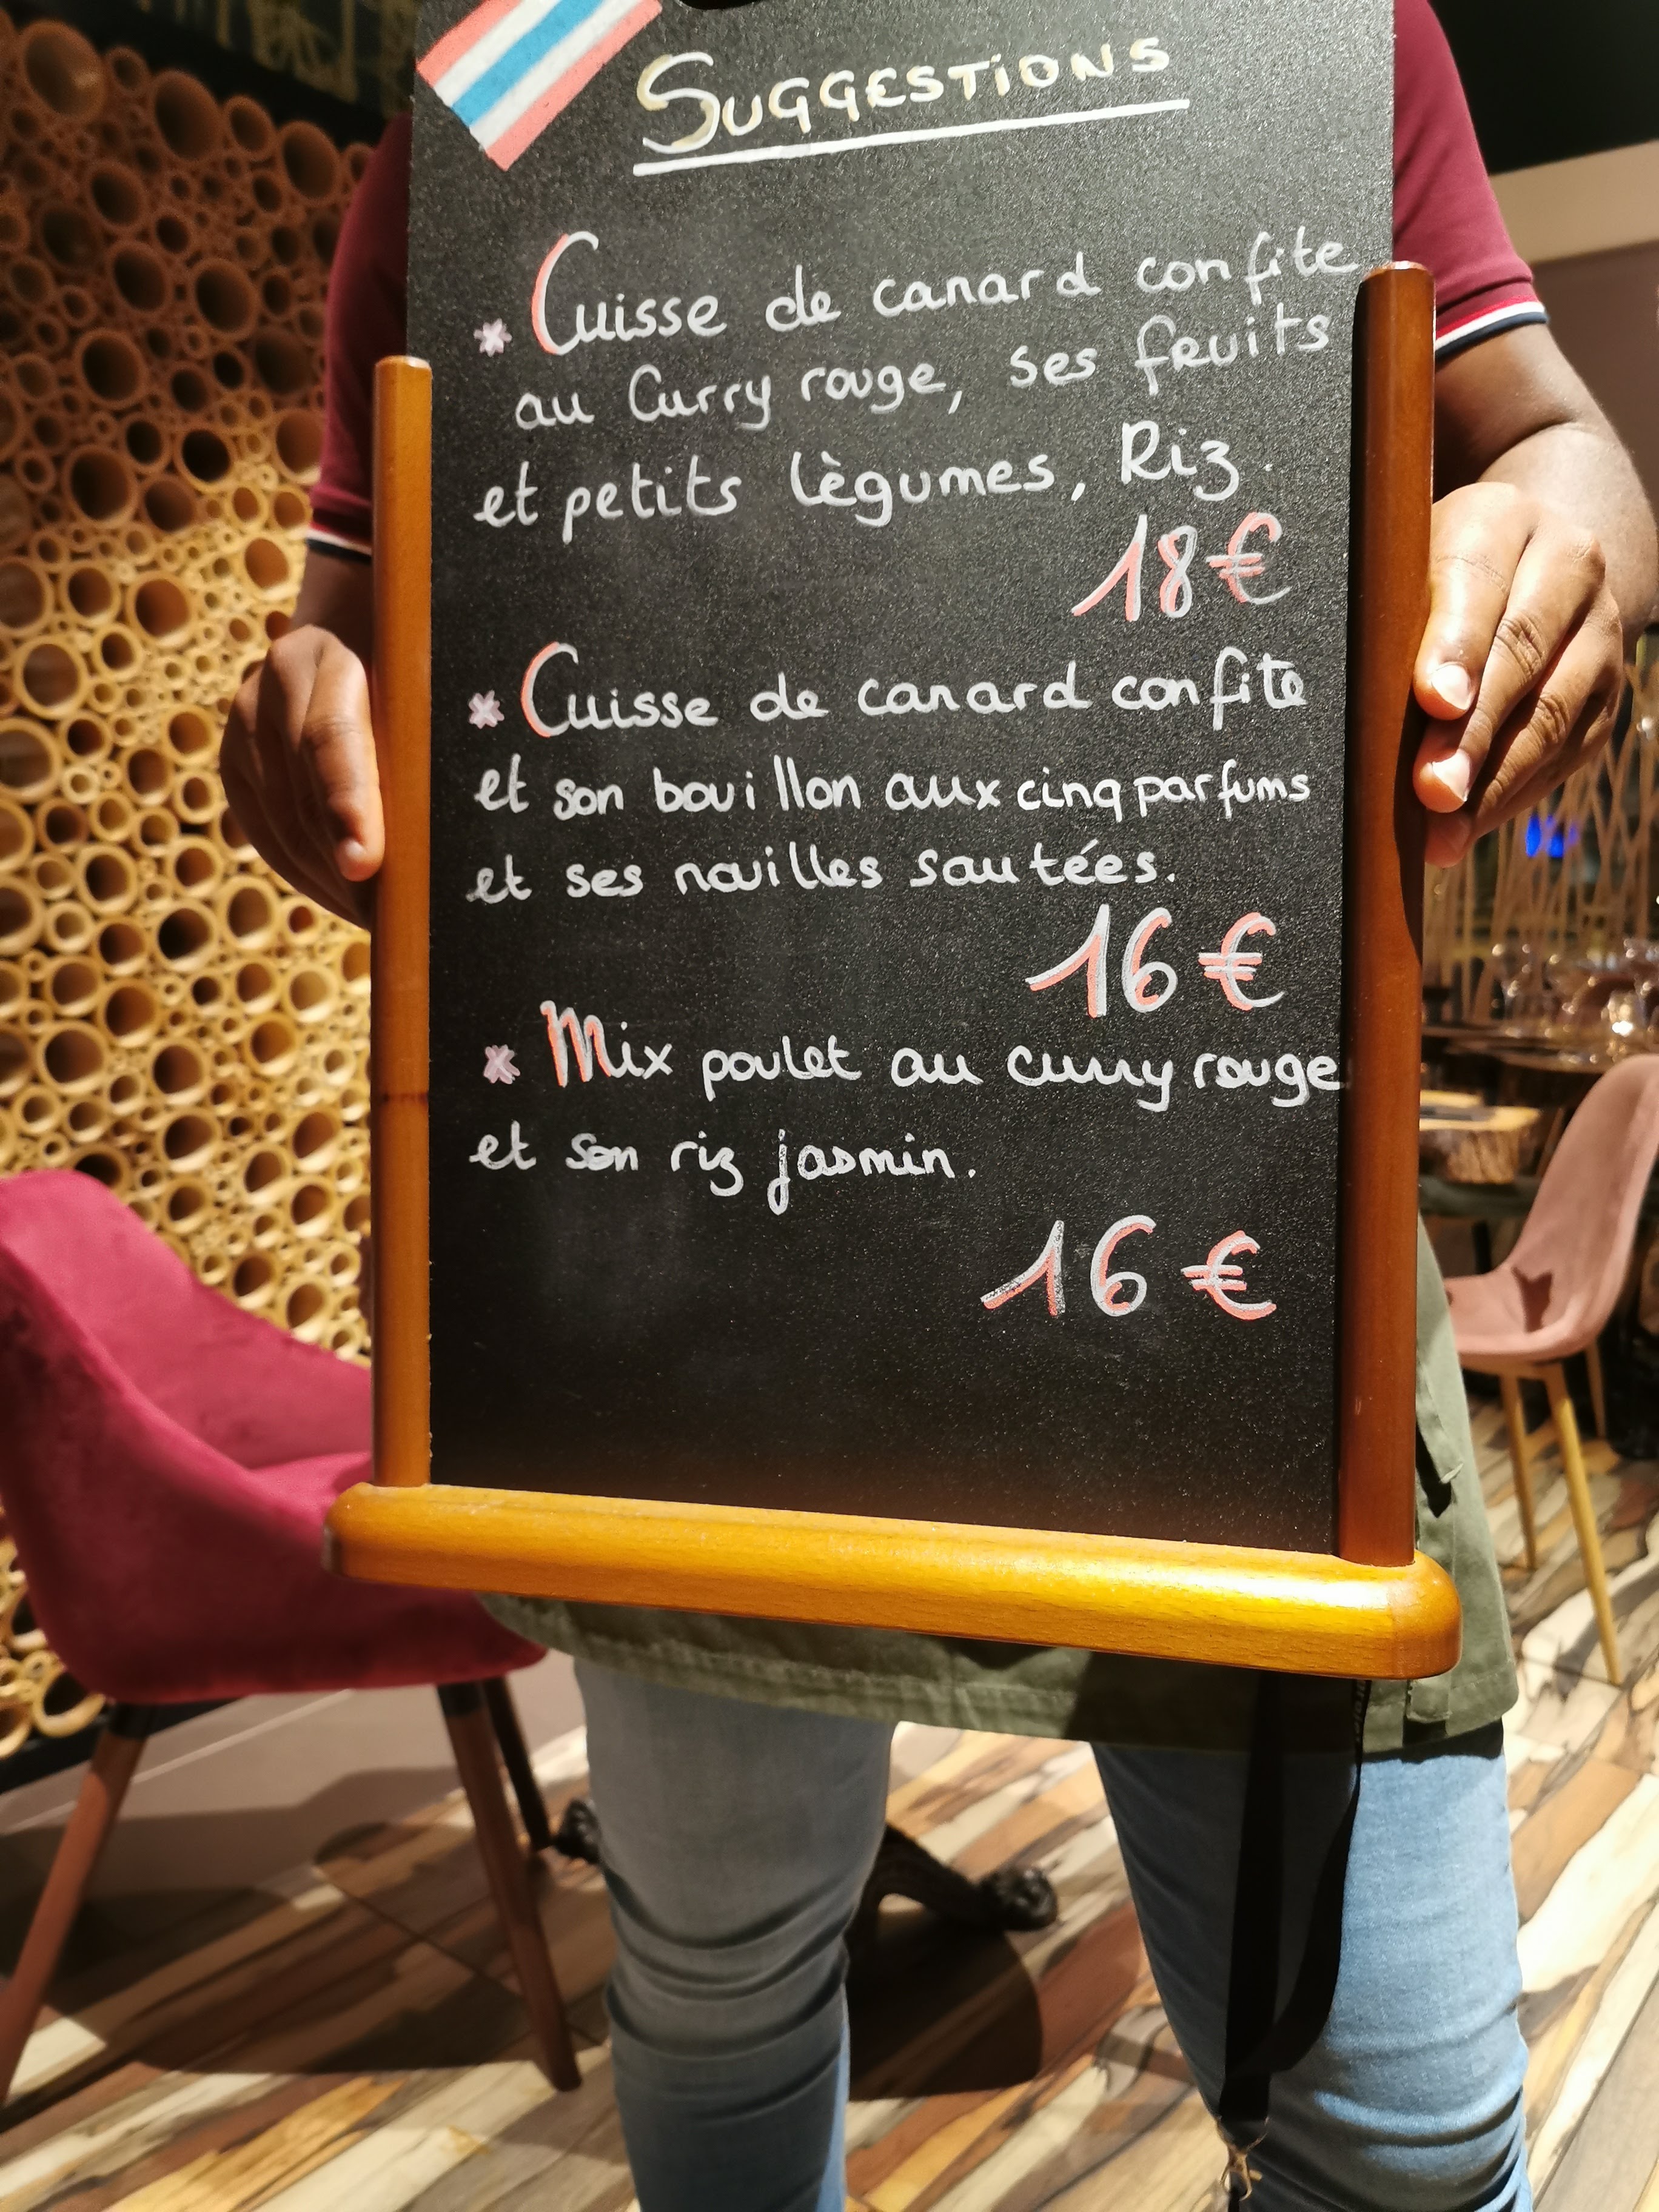 SUGGESTIONS
* Cuisse de canard confite
au Curry rouge, ses fruits
et petits lègumes, Riz.
18€
* Cuisse de canard confite
et son bouillon aux cinq parfums
et ses nouilles sautées.
16€
* Mix poulet au curry rouge
et son riz jasmin.
16€